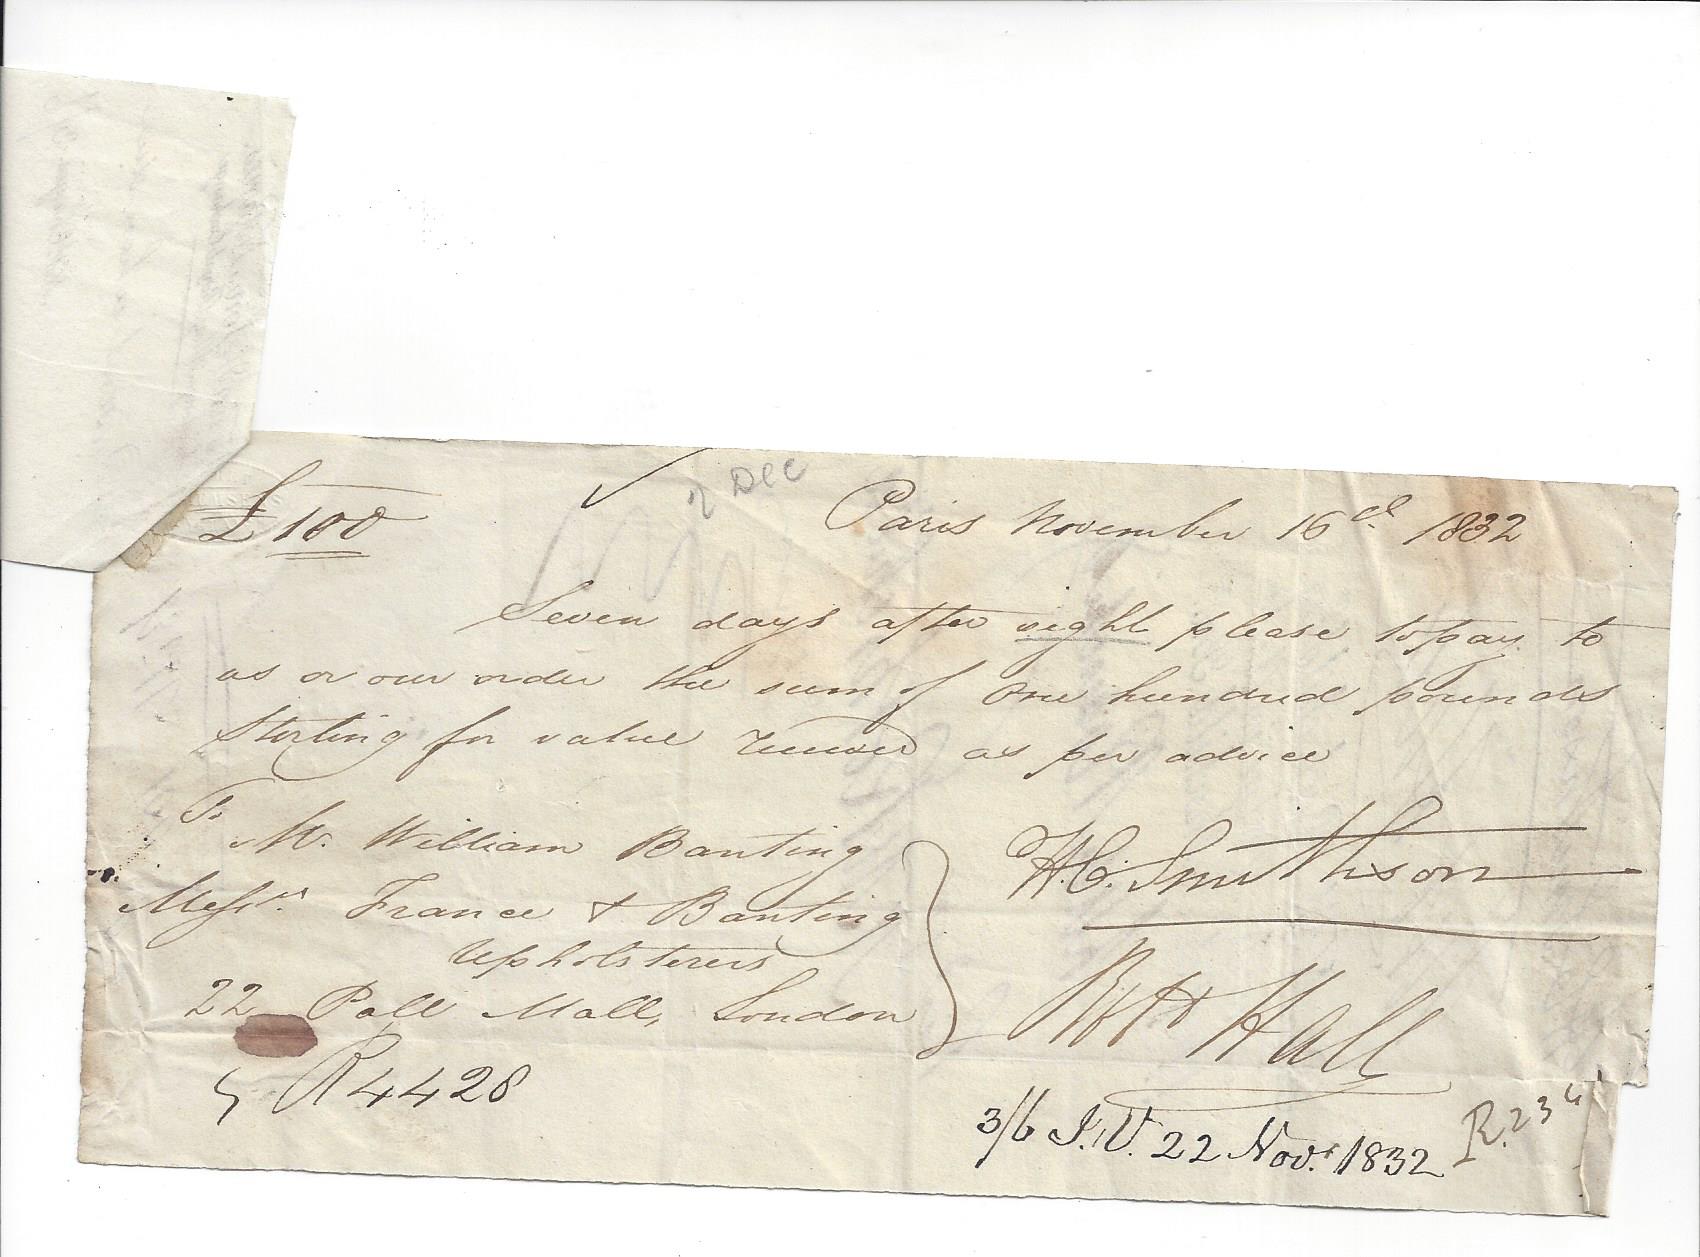 £100
2 Dec
Paris November 16th 1832
Seven days after sight please to pay to
us or our order the sum of One hundred pounds
Sterling for value received as per advice
To
Mr. William Banting
Messrs. France & Banting
Upholsterers
22 Pall Mall, London
H.C. Smithson
Hall
R4428
3/6 J.V. 22 Novr. 1832
R. 23